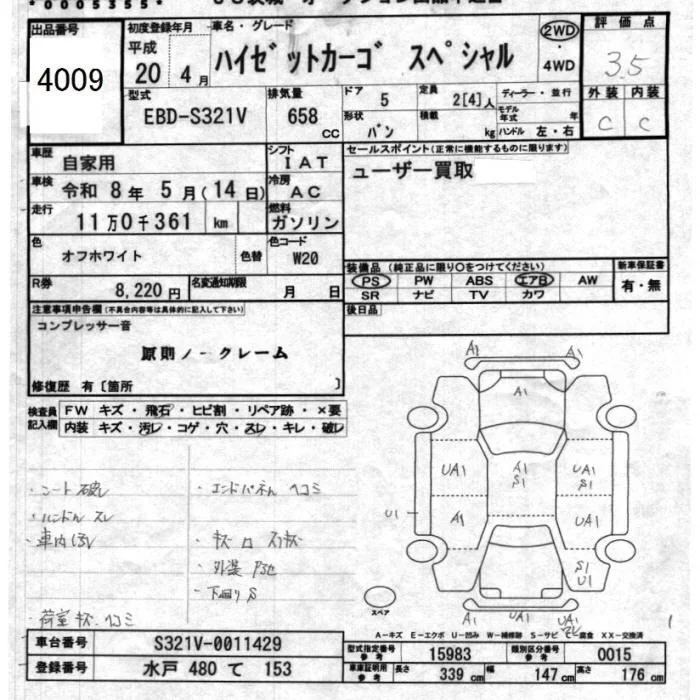 *0005355*
出品番号 4009
初度登録年月 平成 20 4月
車名・グレード ハイゼットカーゴ スペシャル
2WD・4WD
評価点 3.5
外装 C 内装 C
型式 EBD-S321V
排気量 658 CC
ドア 5
定員 2[4]人
ディーラー・並行
形状 バン
積載 kg
モデル年式 年
ハンドル 左・右
車歴 自家用
シフト IAT
セールスポイント(正常に機能するものに限ります)
ユーザー買取
車検 令和 8年 5月(14日)
冷房 AC
走行 11万0千361 km
燃料 ガソリン
色 オフホワイト 色替
色コード W20
装備品 (純正品に限り○をつけてください)
PS PW ABS エアB AW
SR ナビ TV カワ
新車保証書 有・無
R券 8,220円
名変通知期限 月 日
後日品
注意事項申告欄(不具合内容等は具体的に記入して下さい)
コンプレッサー音
原則ノークレーム
修復歴 有〔箇所 〕
検査員記入欄
FW キズ・飛石・ヒビ割・リペア跡・×要
内装 キズ・汚レ・コゲ・穴・スレ・キレ・破レ
・シート破レ
・ハンドル スレ
・車内汚レ
・荷室キズ・ヘコミ
・エンドパネル ヘコミ
・外装
・下回りS
A1 A1
A1
UA1 A1 S1 UA1 S1
U1 A1 UA1
S1 U1
A1 UA1 A1
スペア
A-キズ E-エクボ U-凹み W-補修跡 S-サビ C-腐食 XX-交換済
車台番号 S321V-0011429
登録番号 水戸 480 て 153
型式指定番号 参考 15983
類別区分番号 参考 0015
車庫証明用 参考 長さ 339cm 幅 147cm 高さ 176cm